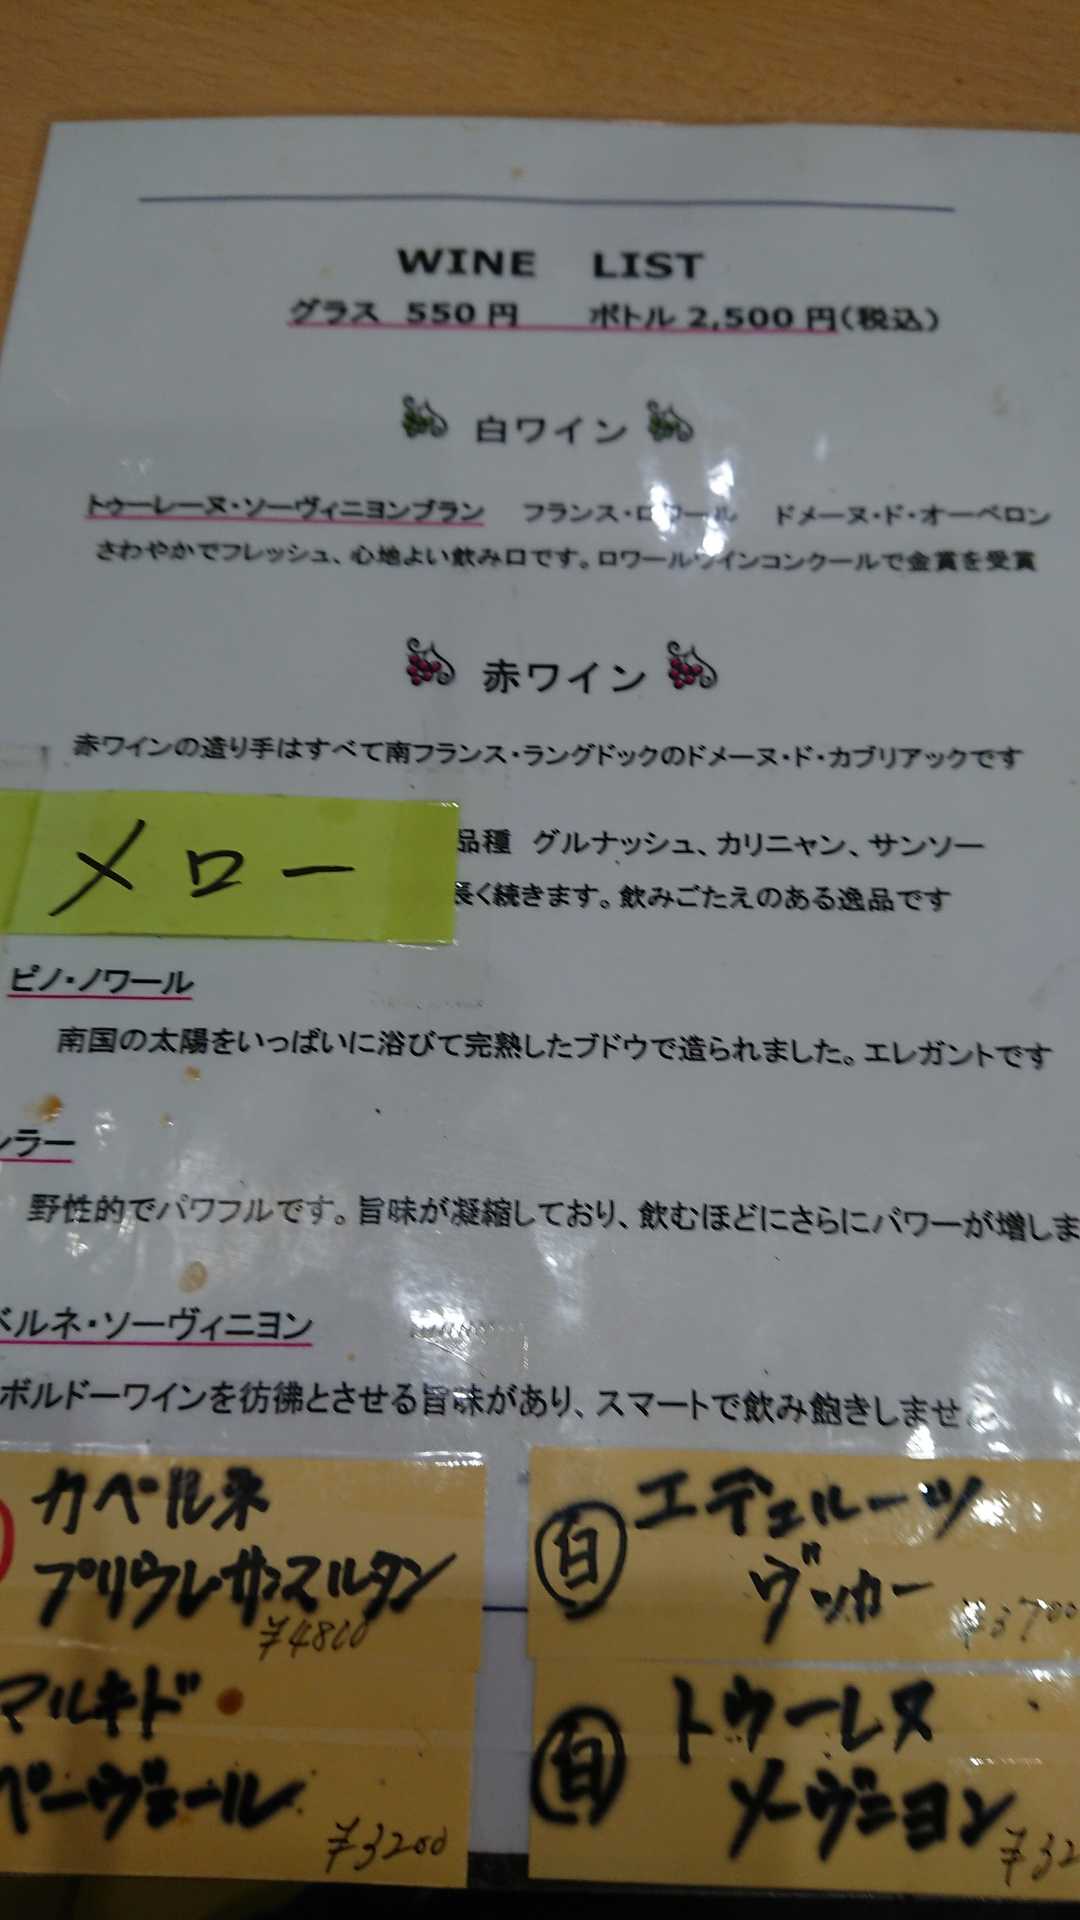 WINE LIST
グラス 550円 ボトル 2,500円(税込)
白ワイン
トゥーレーヌ・ソーヴィニヨンブラン フランス・ロワール ドメーヌ・ド・オーペロン
さわやかでフレッシュ、心地よい飲み口です。ロワールワインコンクールで金賞を受賞
赤ワイン
赤ワインの造り手はすべて南フランス・ラングドックのドメーヌ・ド・カブリアックです
メロー
品種 グルナッシュ、カリニャン、サンソー
長く続きます。飲みごたえのある逸品です
ピノ・ノワール
南国の太陽をいっぱいに浴びて完熟したブドウで造られました。エレガントです
シラー
野性的でパワフルです。旨味が凝縮しており、飲むほどにさらにパワーが増しま
ベルネ・ソーヴィニヨン
ボルドーワインを彷彿とさせる旨味があり、スマートで飲み飽きしませ
カベルネ
プリウレサンスルタン
¥4800
白 エデュルーツ
ヴンカー
¥3700
マルキド
ベーヴェール
¥3200
白 トゥーレヌ
ソーヴニヨン
¥32